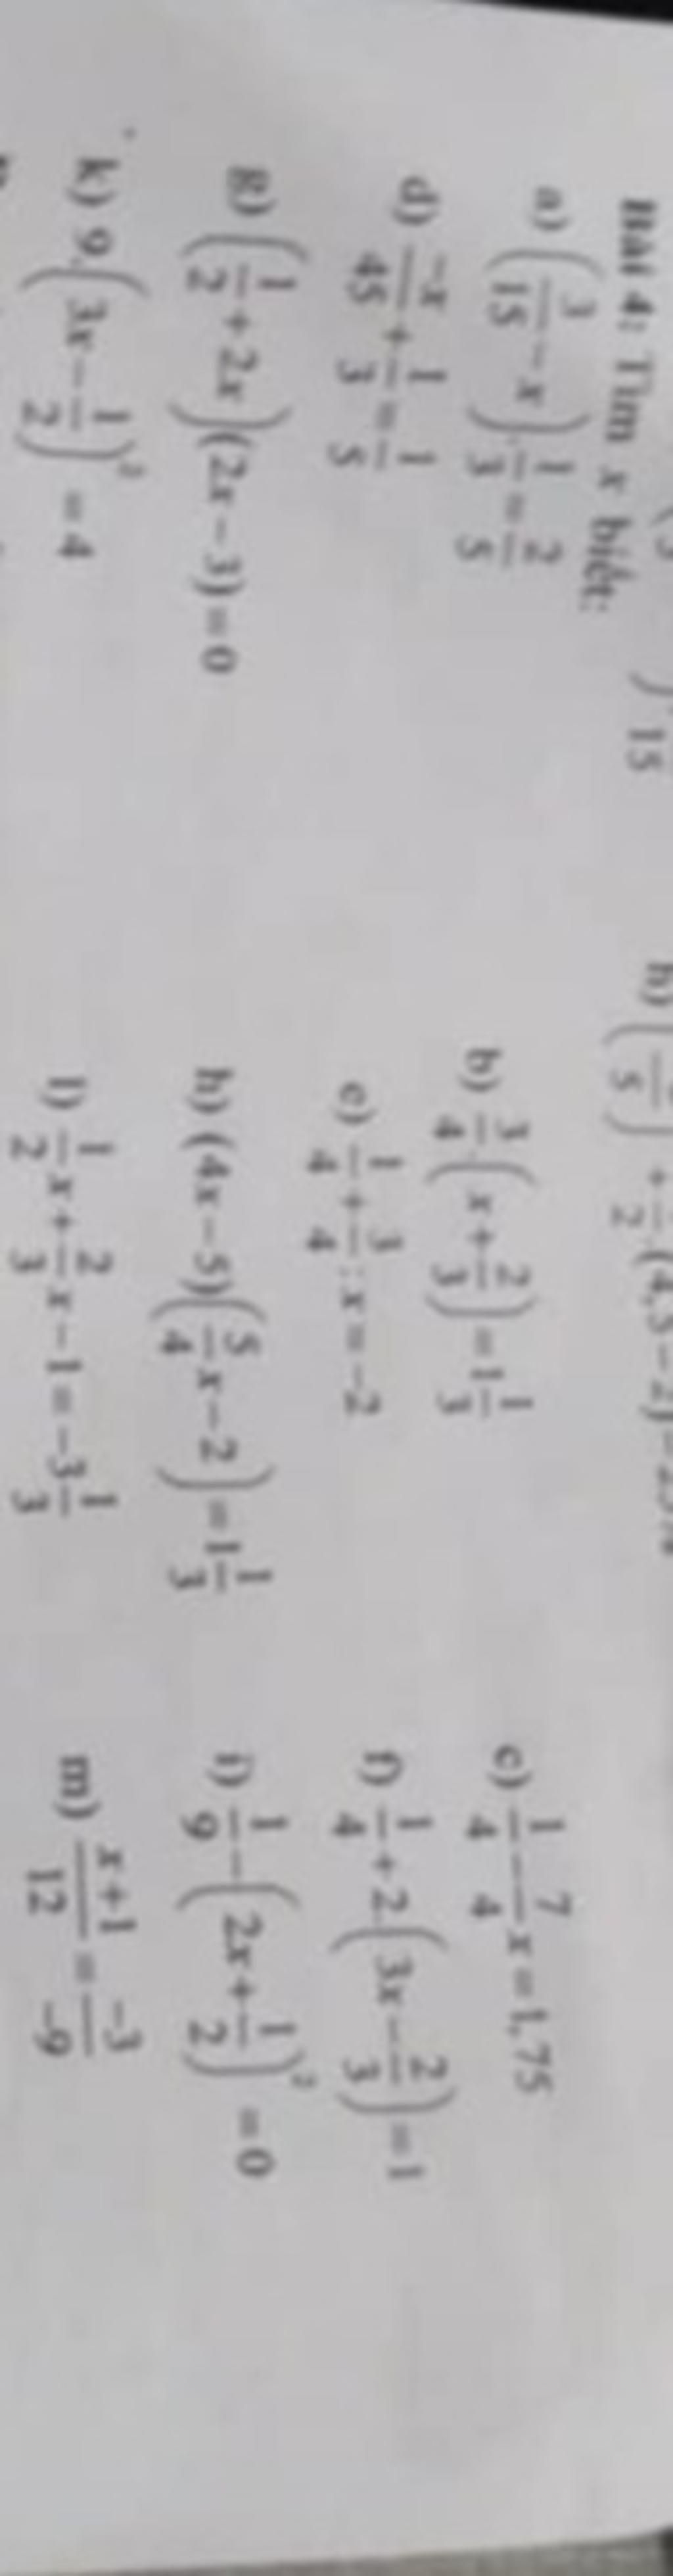 h) + (4,5 − 2)
15
Bài 4: Tìm x biết:
a) (3/15 − x).1/3 = 2/5 b) 3/4.(x + 2/3) = 1 1/3 c) 1/4 − 7/4 x = 1,75
d) −x/45 + 1/3 = 1/5 e) 1/4 + 3/4 : x = −2 f) 1/4 + 2.(3x − 2/3) = 1
g) (1/2 + 2x)(2x − 3) = 0 h) (4x − 5)(5/4 x − 2) = 1 1/3 i) 1/9 − (2x + 1/2)² = 0
k) 9.(3x − 1/2)² = 4 l) 1/2 x + 2/3 x − 1 = −3 1/3 m) x + 1/12 = −3/−9